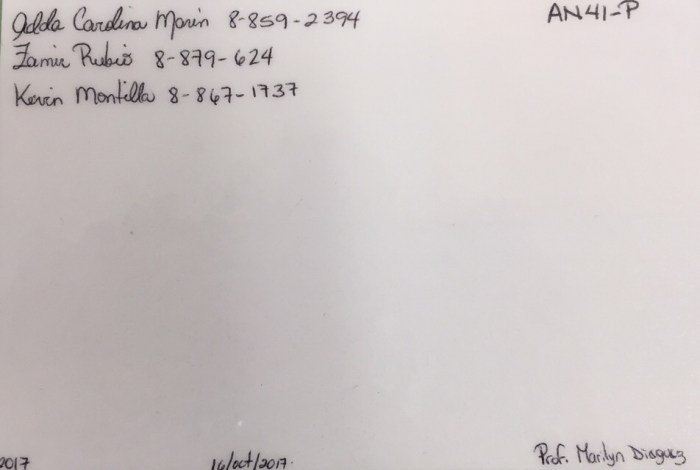 Adda Carolina Marin 8-859-2394
AN41-P
Zamir Rubio 8-879-624
Kevin Montilla 8-867-1737
2017
16/oct/2017.
Prof. Marilyn Dieguez